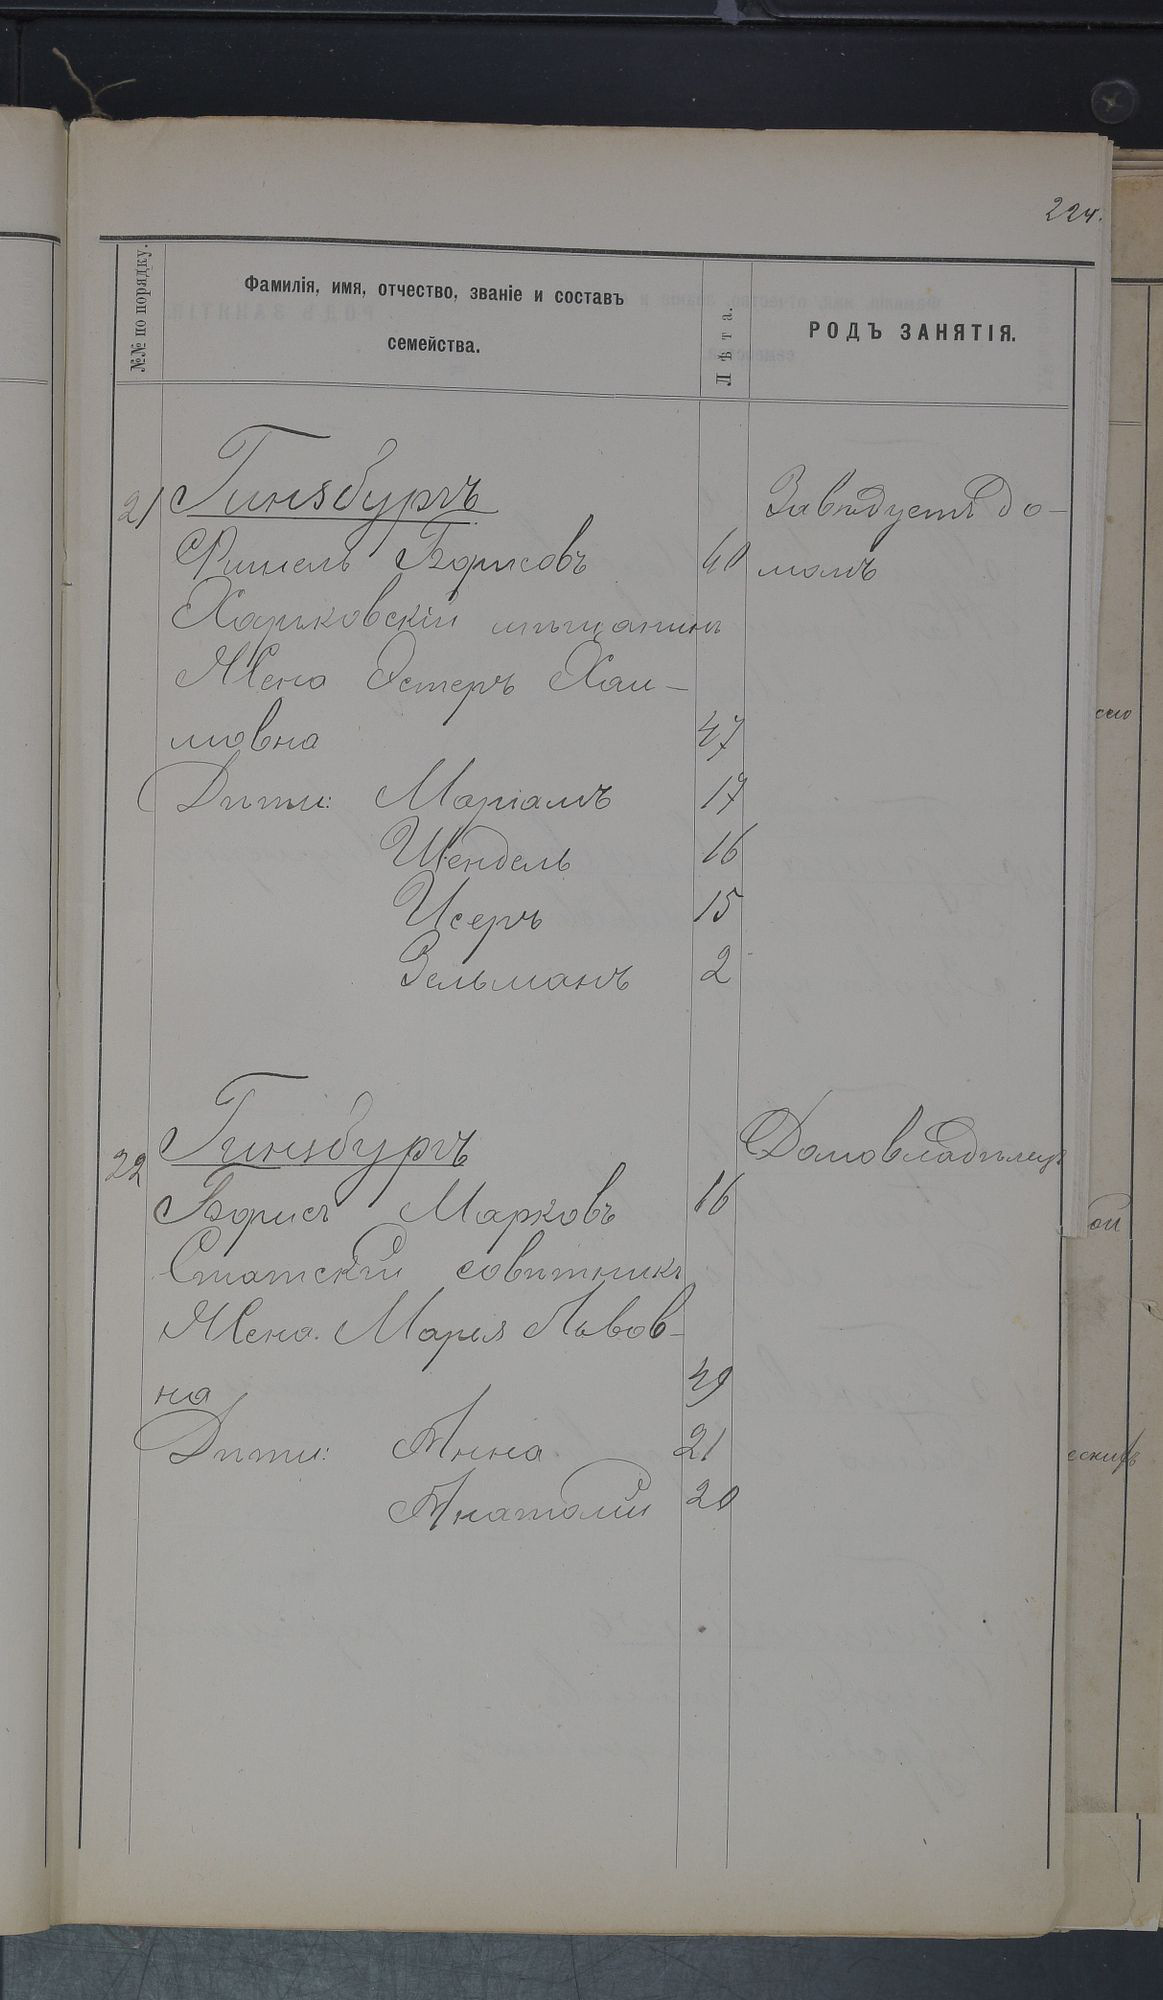 224.
№№ по порядку.
Фамилія, имя, отчество, званіе и составъ
семейства.
Лѣта.
РОДЪ ЗАНЯТІЯ.
21 Гинзбургъ Завѣдуетъ до-
Фишель Борисовъ 40 момъ
Харьковскій мѣщанинъ
Жена Эстеръ Хаи-
мовна 47
Дѣти: Маріамъ 17
Шендель 16
Исеръ 15
Зельманъ 2
22 Гинзбургъ Домовладѣлецъ
Борисъ Марковъ 16
Статскій совѣтникъ
Жена Марья Львов-
на 49
Дѣти: Анна 21
Анатолій 20